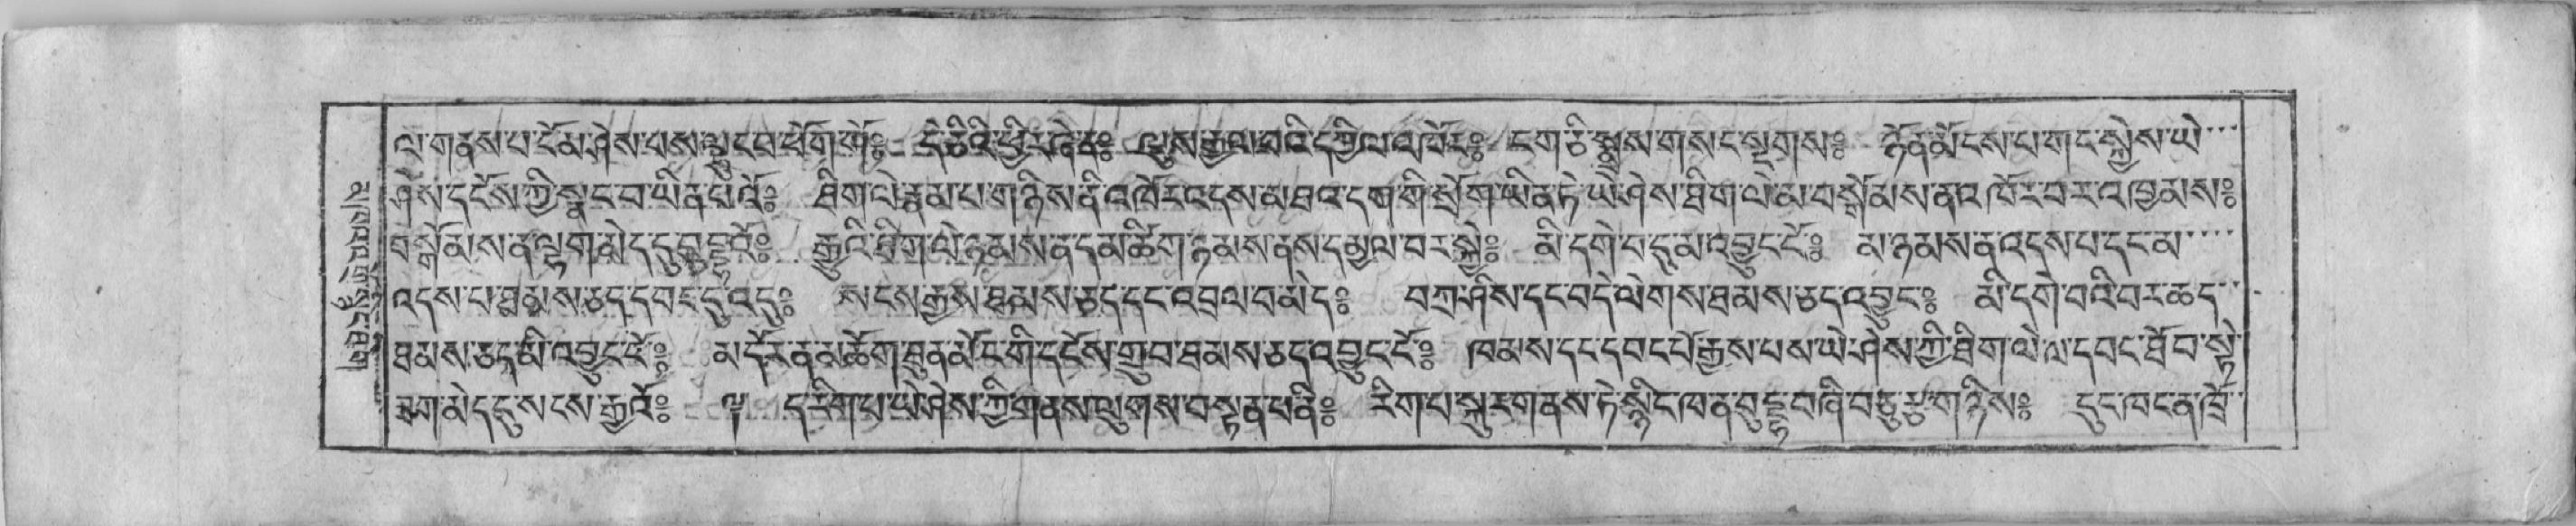 ལ་གནས་པ་ངོམ་ཤེས་པས་ལྟུང་བ་ཕོག་གོ༔ དེ་ཅིའི་ཕྱིར་ཞེ་ན༔ ལུས་རྒྱལ་བའི་དཀྱིལ་འཁོར༔ ངག་ཅི་སྨྲས་གསང་སྔགས༔ ཉོན་མོངས་པ་གང་སྐྱེས་ཡེ
ཤེས་དངོས་ཀྱི་སྣང་བ་ཡིན་པའོ༔ ཐིག་ལེ་རྣམ་པ་གཉིས་ནི་འཁོར་འདས་མཐའ་དག་གི་སྲོག་ཡིན་ཏེ་ཡེ་ཤེས་ཐིག་ལེ་མ་བསྒོམས་ན་འཁོར་བར་འཁྱམས༔
བསྒོམས་ན་ལྷག་མེད་དུ་བུདྡྷའོ༔ རྒྱུའི་ཐིག་ལེ་ཉམས་ན་དམ་ཚིག་ཉམས་ནས་དམྱལ་བར་སྐྱེ༔ མི་དགེ་བ་དུ་མ་འབྱུང་ངོ༔ མ་ཉམས་ན་འདས་པ་དང་མ
འདས་པ་ཐམས་ཅད་དབང་དུ་འདུ༔ སངས་རྒྱས་ཐམས་ཅད་དང་འབྲལ་བ་མེད༔ བཀྲ་ཤིས་དང་བདེ་ལེགས་ཐམས་ཅད་འབྱུང༔ མི་དགེ་བའི་བར་ཆད
ཐམས་ཅད་མི་འབྱུང་ངོ༔ མདོར་ན་མཆོག་ཐུན་མོང་གི་དངོས་གྲུབ་ཐམས་ཅད་འབྱུང་ངོ༔ ཁམས་དང་དབང་པོ་རྒྱས་པས་ཡེ་ཤེས་ཀྱི་ཐིག་ལེ་ལ་དབང་ཐོབ་སྟེ
ཟག་མེད་དུ་སངས་རྒྱའོ༔ ༈ ད་རིག་པ་ཡེ་ཤེས་ཀྱི་གནས་ལུགས་བསྟན་པ་ནི༔ རིག་པ་སྐུར་གནས་ཏེ་སྙིང་ཁ་ན་བུདྡྷ་བཞི་བཅུ་རྩ་གཉིས༔ དུང་ཁང་ན་ཁྲོ